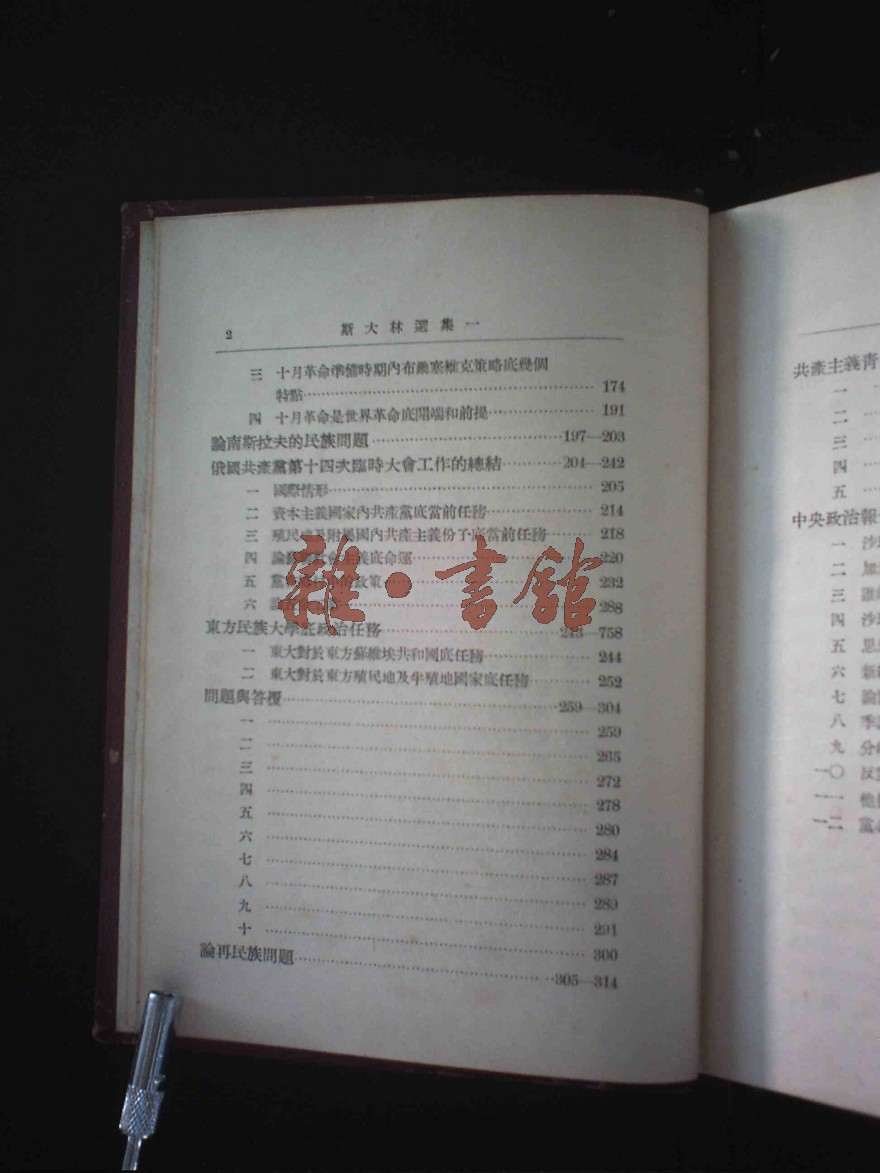 2 斯大林選集一
三 十月革命準備時期內布爾塞維克策略底幾個
特點 174
四 十月革命是世界革命底開端和前提 191
論南斯拉夫的民族問題 197—203
俄國共產黨第十四次臨時大會工作的總結 204—242
一 國際情形 205
二 資本主義國家內共產黨底當前任務 214
三 殖民地及附屬國內共產主義份子底當前任務 218
四 論 主義底命運 220
五 黨 的政策 232
六 288
東方民族大學底政治任務 243—758
一 東大對於東方蘇維埃共和國底任務 244
二 東大對於東方殖民地及半殖地國家底任務 252
問題與答覆 259—304
一 259
二 265
三 272
四 278
五 280
六 284
七 287
八 289
九 291
十 300
論再民族問題 305—314
雜·書館
共產主義青
一
二
三
四
五
中央政治報
一 沙
二 加
三 誰
四 沙
五
六 新
七 論
八 季
九 分
一〇 反
一一 他
一二 黨